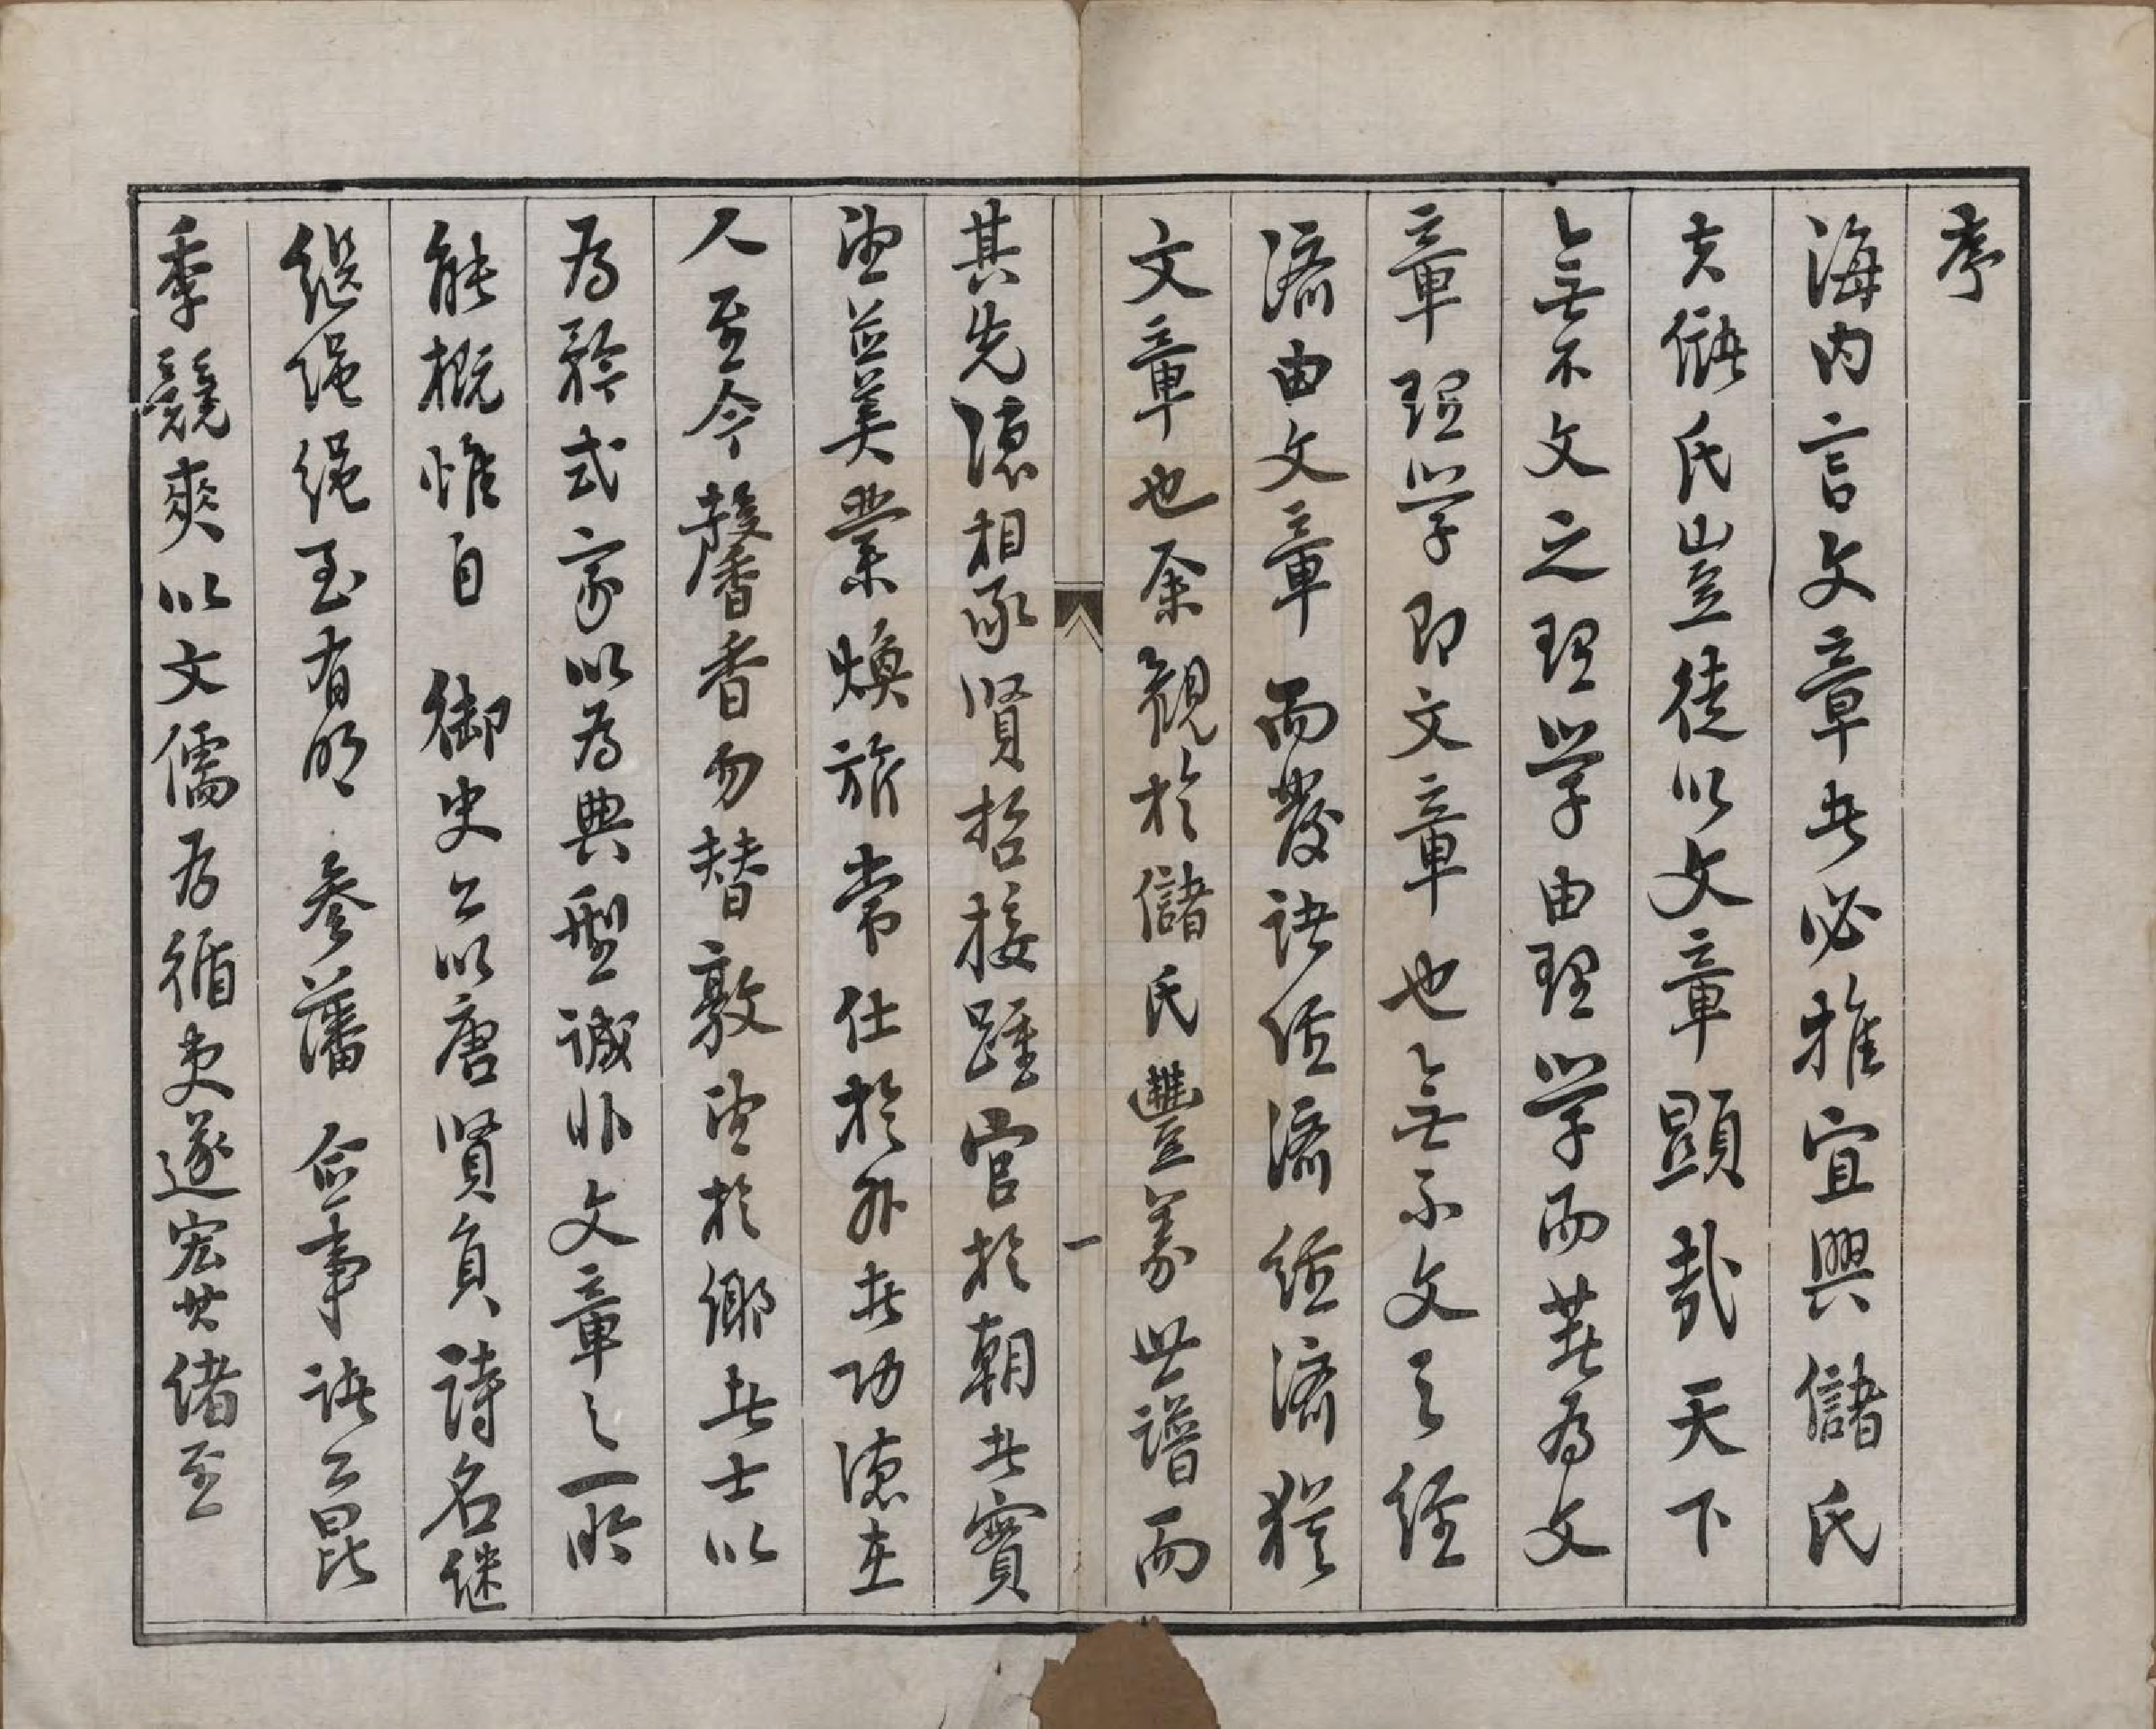 序
海内言文章者必推宜興儲氏
夫儲氏豈徒以文章顯哉天下
無不文之理學由理學而著為文
章理學即文章也無不文之經
濟由文章而發諸經濟經濟猶
文章也余觀於儲氏豐義世譜而
其先德相承賢哲接踵官於朝者實
望並美業煥旂常仕於外者功德在
人至今馨香勿替敦望於鄉者士以
為矜式家以為典型誠非文章之一所
能概惟自 御史公以唐賢負詩名继
繼繩繩至有明 參藩 僉事諸公昆
季競爽以文儒為循吏遂宏其緒至
一